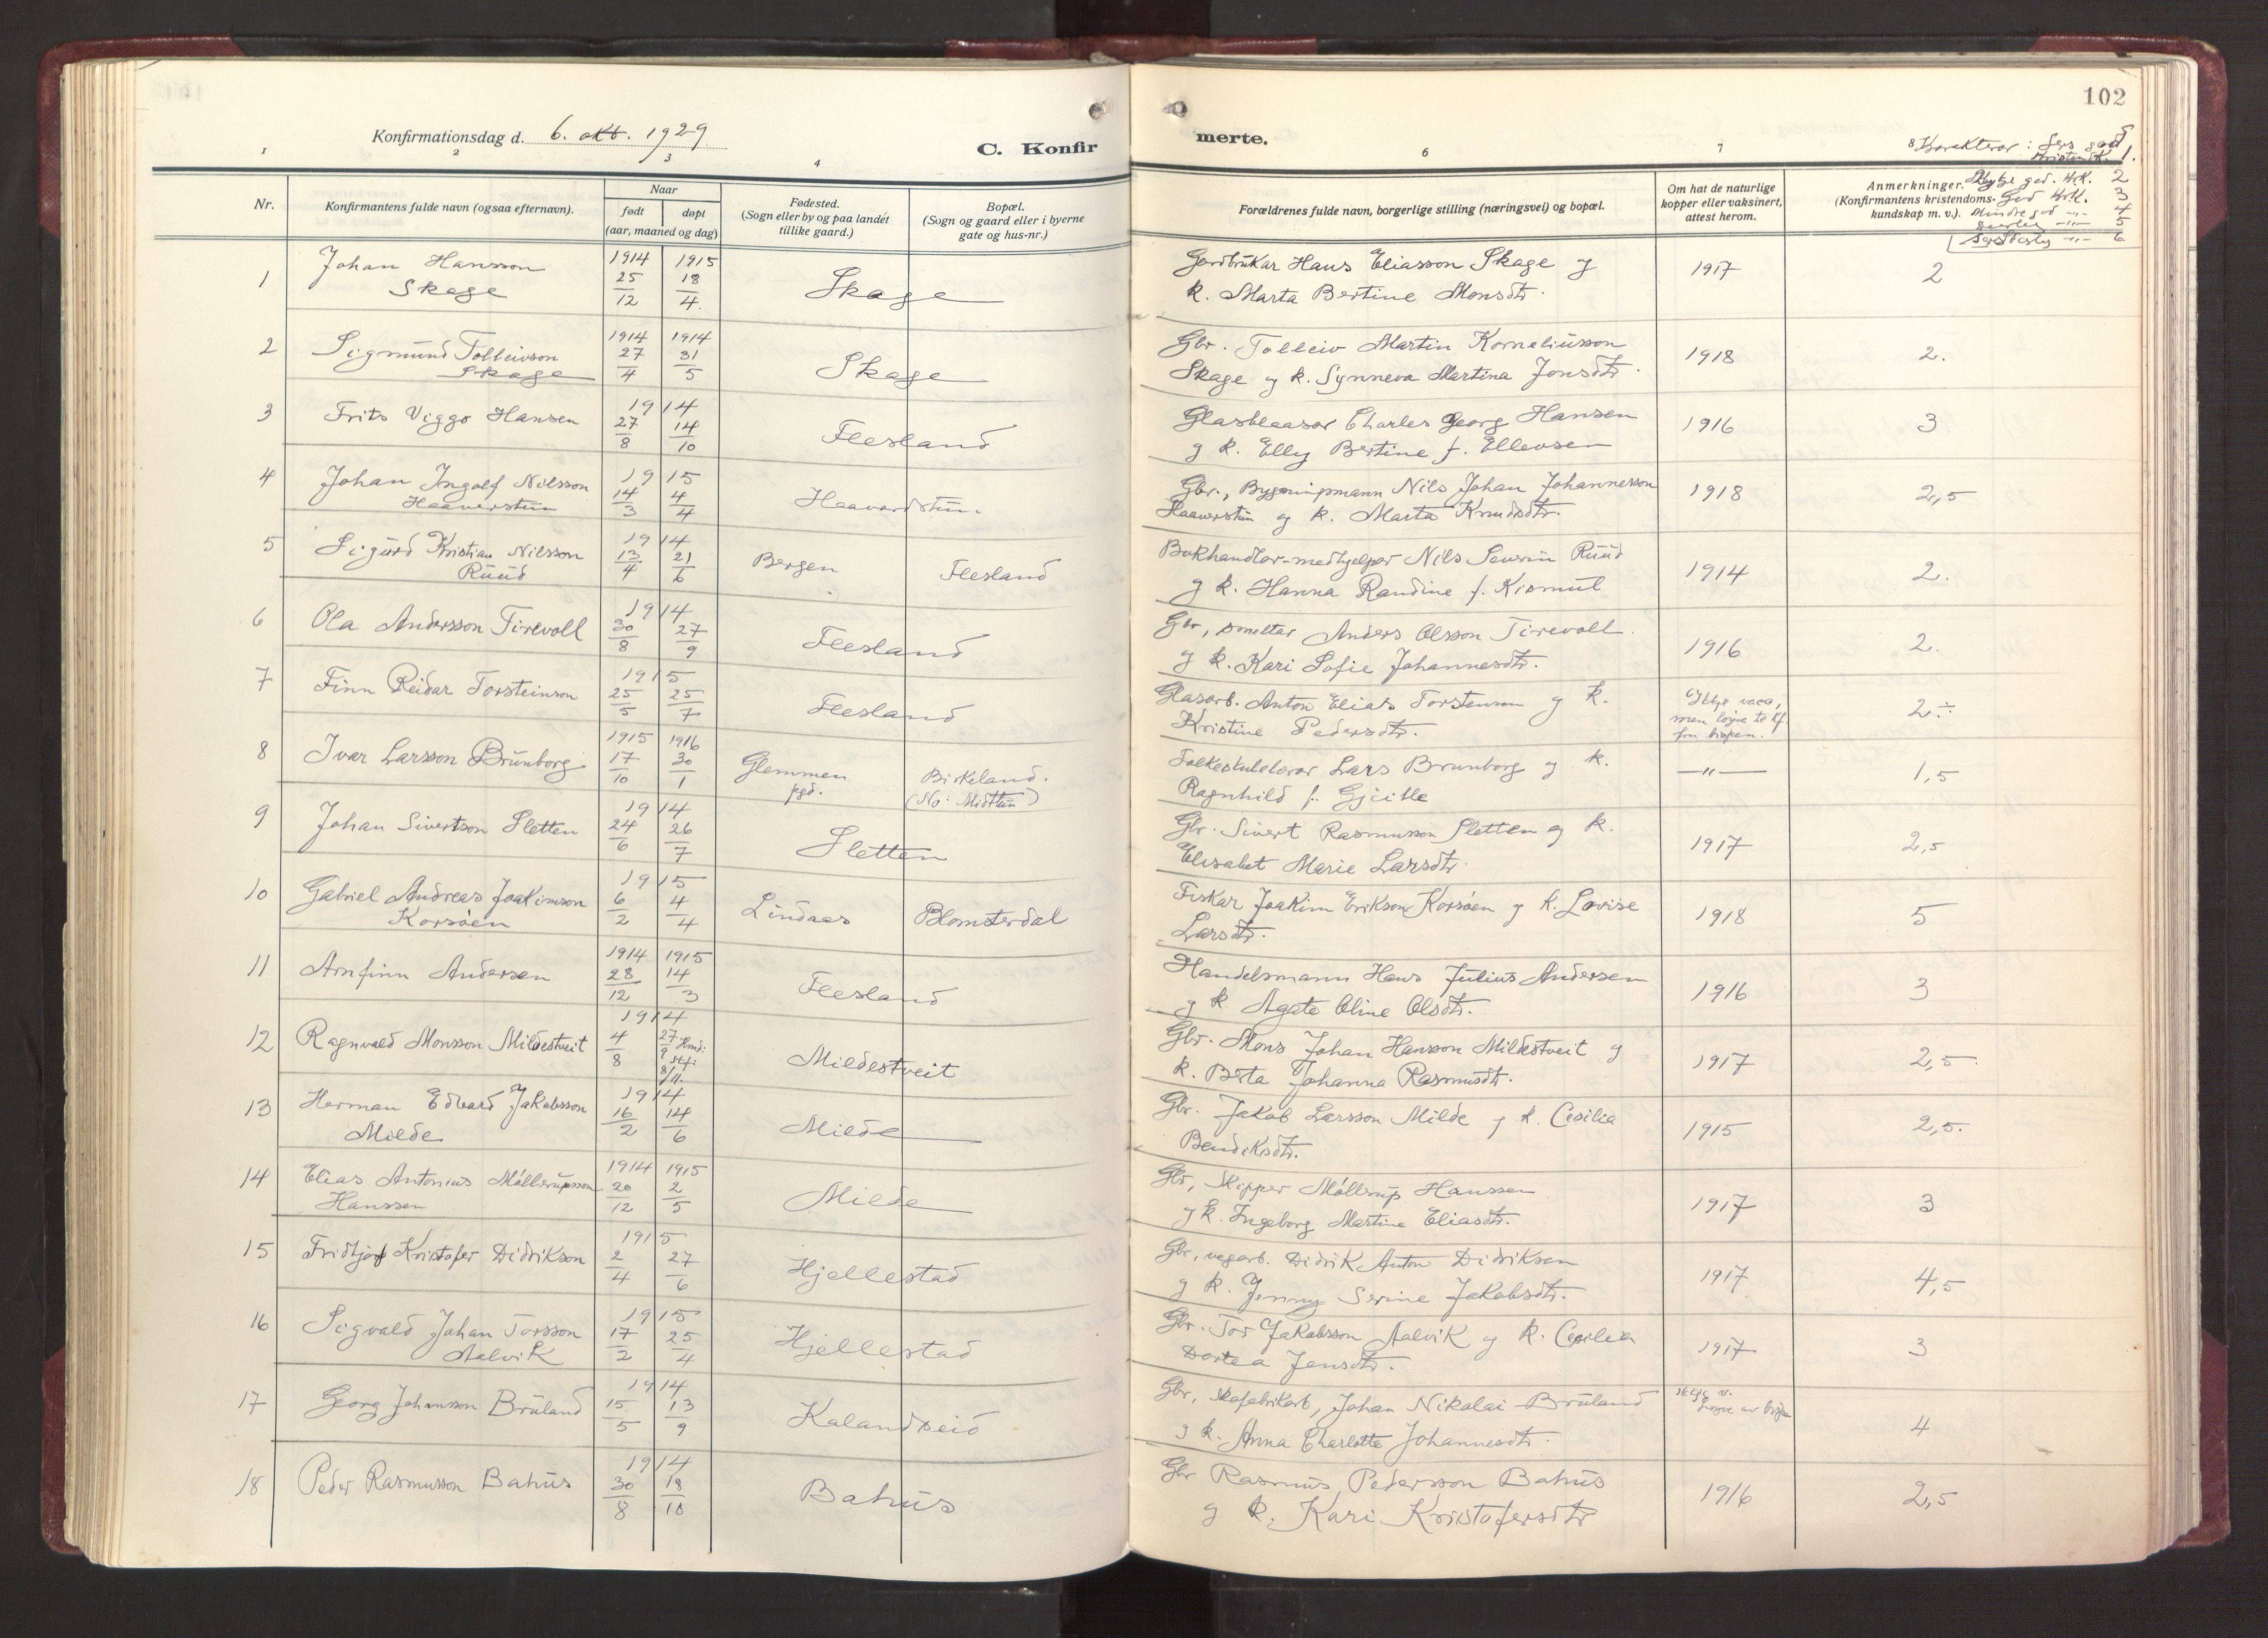 102
Konfirmationsdag d. 6. okt. 1929
C. Konfir
merte.
1
2
3
4
6
7
8 Karakterar: Sers god
Kristendk. 1.
Nr.
Konfirmantens fulde navn (ogsaa efternavn).
Naar
født
døpt
(aar, maaned og dag)
Fødested.
(Sogn eller by og paa landet
tillike gaard.)
Bopæl.
(Sogn og gaard eller i byerne
gate og hus-nr.)
Forældrenes fulde navn, borgerlige stilling (næringsvei) og bopæl.
Om hat de naturlige
kopper eller vaksinert,
attest herom.
Anmerkninger.
(Konfirmantens kristendoms-
kundskap m. v.).
god. Kr.K. 2
God Kr.K. 3
Mindre god -"- 4
-"- 5
-"- 6
1
Johan Hansson
Skage
1914 1915
25/12 18/4
Skage
Gardbrukar Hans Eliasson Skage og
k. Marta Bertine Monsdtr.
1917
2
2
Sigmund Tolleivson
Skage
1914 1914
27/4 31/5
Skage
Gbr. Tolleiv Martin Korneliusson
Skage og k. Synneva Martina Jonsdtr.
1918
2.
3
Frits Viggo Hansen
1914
27/8 14/10
Flesland
Glasblaasar Charles Georg Hansen
g k. Elly Bertine f. Ellevsen
1916
3
4
Johan Ingolf Nilsson
Haaverstun
1915
14/3 4/4
Haavardstun.
Gbr., Bygningsmann Nils Johan Johannesson
Haaverstun og k. Marta Knudsdtr.
1918
2,5
5
Sigurd Kristian Nilsson
Ruud
1914
13/4 21/6
Bergen
Flesland
Bokhandlar-medhjelper Nils Severin Ruud
g k. Hanna Randine f. Kismul
1914
2.
6
Ola Andersson Tirevoll
1914
30/8 27/9
Flesland
Gbr, smeltar Anders Olsson Tirevoll
g k. Kari Sofie Johannesdtr.
1916
2.
7
Finn Reidar Torsteinson
1915
25/5 25/7
Flesland
Glasarb. Anton Elias Torstensen g k.
Kristine Pedersdtr.
Ikkje vacs,
men løyve te kf.
fra bispen.
2÷
8
Ivar Larsson Brunborg
1915 1916
17/10 30/1
Glemmen
pgd.
Birkeland.
(No: Midttun)
Folkeskulelærar Lars Brunborg og k.
Ragnhild f. Gjeitle
-"-
1,5
9
Johan Sivertson Sletten
1914
24/6 26/7
Sletten
Gbr. Sivert Rasmusson Sletten og k.
Elisabet Marie Larsdtr.
1917
2,5
10
Gabriel Andreas Joakimson
Korsøen
1915
6/2 4/4
Lindaas
Blomsterdal
Fiskar Joakim Erikson Korsøen g k. Lovise
Larsdtr.
1918
5
11
Arnfinn Andersen
1914 1915
28/12 14/3
Flesland
Handelsmann Hans Julius Andersen
g k Agate Oline Olsdtr.
1916
3
12
Ragnvald Monsson Mildestveit
1914
4/8 27/9
8/11.
Mildestveit
Gbr. Mons Johan Hansson Mildestveit g
k. Brita Johanna Rasmusdtr.
1917
2,5
13
Herman Edvard Jakobsson
Milde
1914
16/2 14/6
Milde
Gbr. Jakob Larsson Milde g k. Cecilia
Bendiksdtr.
1915
2,5.
14
Elias Antonius Møllerupsson
Hanssen
1914 1915
20/12 2/5
Milde
Gbr, skipper Møllerup Hanssen
g k. Ingeborg Martine Eliasdtr.
1917
3
15
Fridtjof Kristofer Didrikson
1915
2/4 27/6
Hjellestad
Gbr, vegarb. Didrik Anton Didriksen
g k. Jenny Serine Jakobsdtr.
1917
4,5
16
Sigvald Johan Torsson
Aalvik
1915
17/2 25/4
Hjellestad
Gbr. Tor Jakobsson Aalvik og k. Cecilia
Dortea Jensdtr.
1917
3
17
Georg Johansson Bruland
1914
15/5 13/9
Kalandseid
Gbr, skofabrikarb, Johan Nikolai Bruland
g k. Anna Charlotte Johannesdtr.
4
18
Peder Rasmusson Bahus
1914
30/8 18/10
Bahus
Gbr Rasmus Pedersson Bahus
g k. Kari Kristofersdtr
1916
2,5